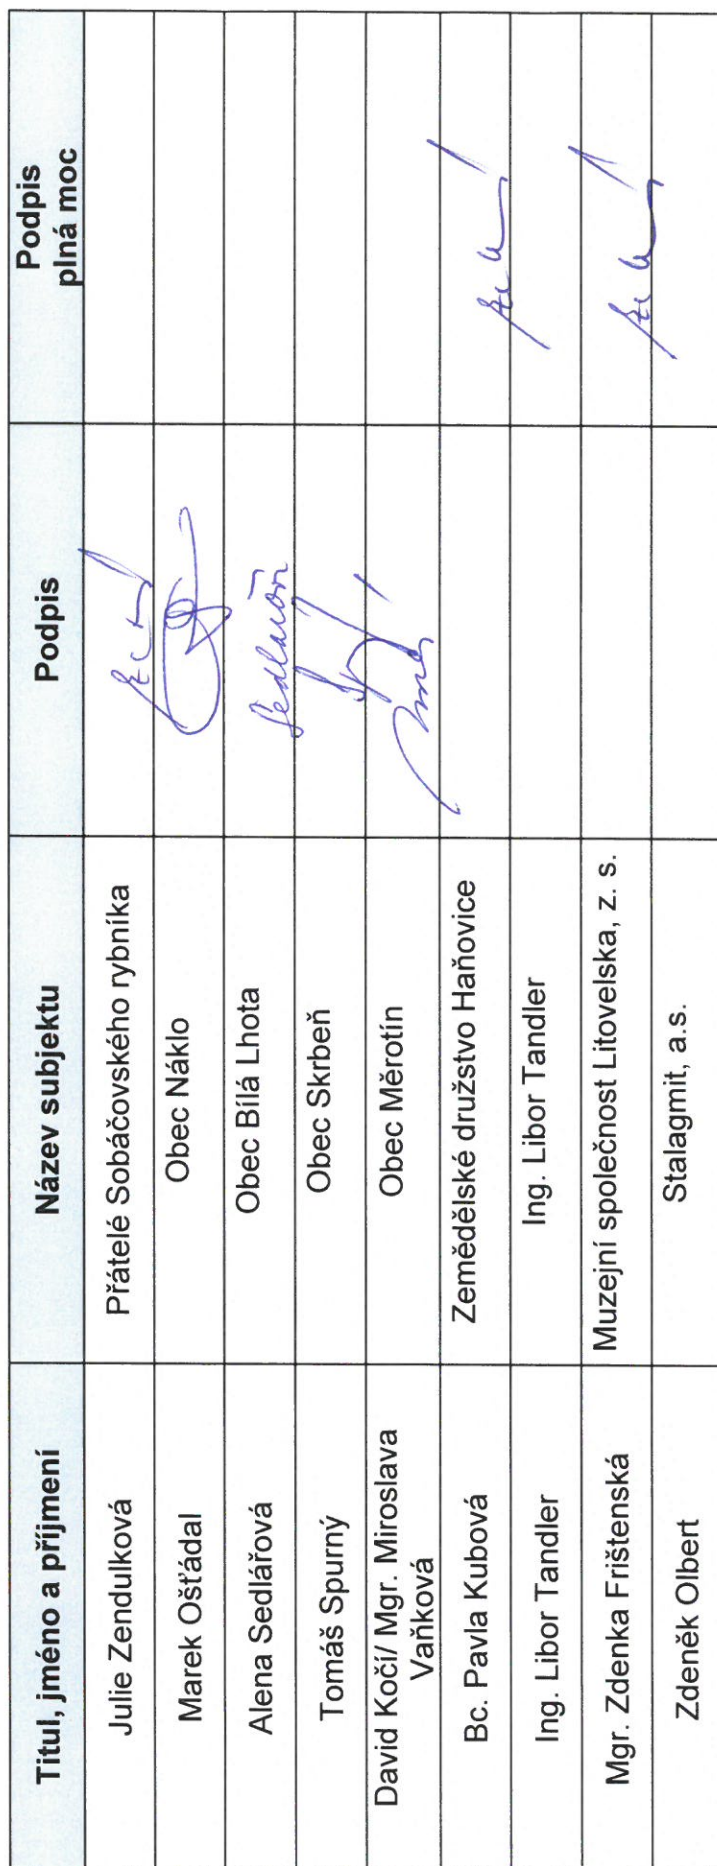 Titul, jméno a příjmení Název subjektu Podpis Podpis
plná moc
Julie Zendulková Přátelé Sobáčovského rybníka
Marek Ošťádal Obec Náklo
Alena Sedlářová Obec Bílá Lhota Sedlářová
Tomáš Spurný Obec Skrbeň
David Kočí/ Mgr. Miroslava Obec Měrotín
Vaňková
Bc. Pavla Kubová Zemědělské družstvo Haňovice
Ing. Libor Tandler Ing. Libor Tandler
Mgr. Zdenka Frištenská Muzejní společnost Litovelska, z. s.
Zdeněk Olbert Stalagmit, a.s.